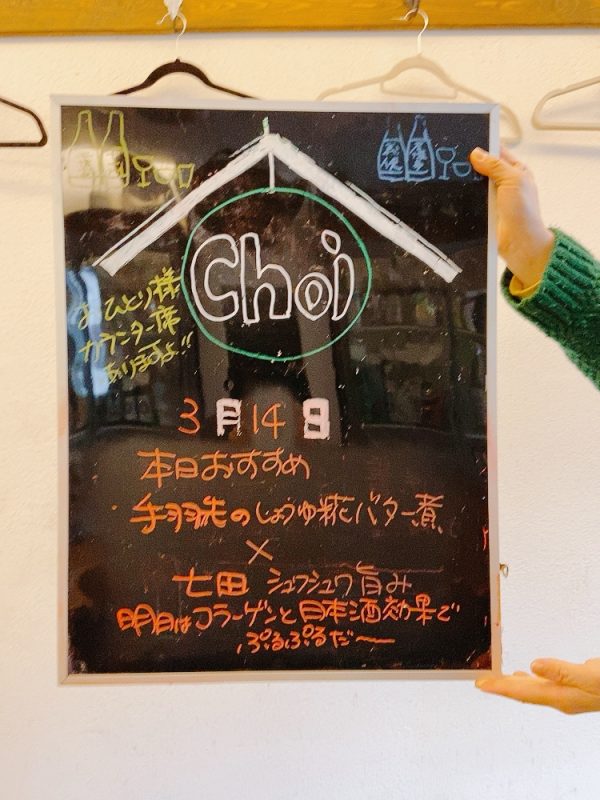 Choi
おひとり様
カウンター席
ありますよ!!
3月14日
本日おすすめ
手羽先のしょうゆ糀バター煮
×
七田 シュワシュワ旨み
明日はコラーゲンと日本酒効果で
ぷるぷるだ〜